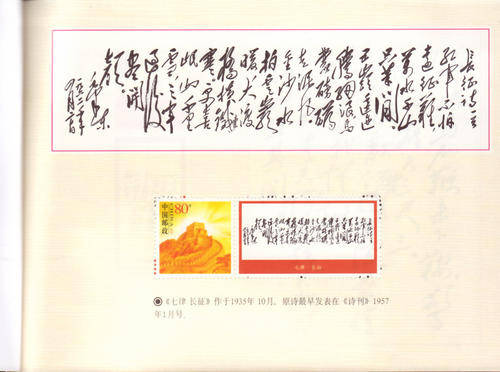 长征诗一首
红军不怕
远征难
万水千山
只等闲
五岭逶迤
腾细浪乌
蒙磅礴
走泥丸
金沙水
拍云崖
暖大渡
桥横铁索
寒更喜
岷山千里
雪三军
过后
尽开
颜
毛泽东
中国邮政
CHINA
80分
七律·长征
◉《七律 长征》作于1935年 10月。原诗最早发表在《诗刊》1957
年1月号。